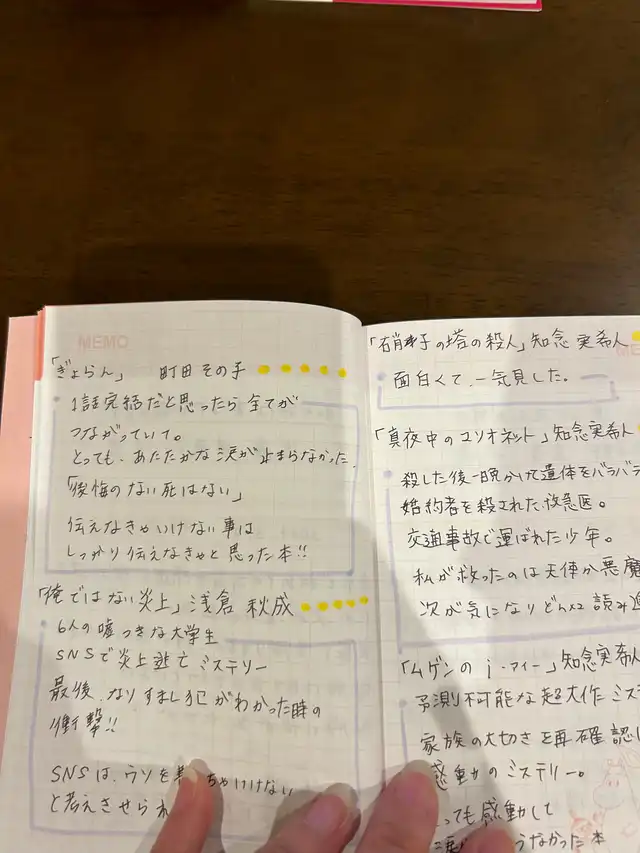 MEMO
「ぎょらん」 町田 その子
1話完結だと思ったら 全てが
つながっていて。
とっても、あたたかな 涙が止まらなかった。
「後悔のない死はない」
伝えなきゃいけない 事は
しっかり 伝えなきゃと 思った本!!
「俺ではない炎上」浅倉 秋成
6人の嘘つきな大学生
SNSで炎上 逃亡 ミステリー
最後、なりすまし犯がわかった時の
衝撃!!
SNSは、ウソを
ちゃいけない
と考えさせられ
「硝子の塔の殺人」知念 実希人
面白くて、一気見した。
「真夜中のマリオネット」知念実希人
殺した後一晩かけて遺体をバラバラ
婚約者を殺された救急医。
交通事故で運ばれた少年。
私が救ったのは天使か悪魔
次が気になりどんどん 読み進
「ムゲンの i・アイー」知念実希人
予測不可能な超大作 ミス
家族の大切さを再確認
感動のミステリー。
っても感動して
うなかった 本